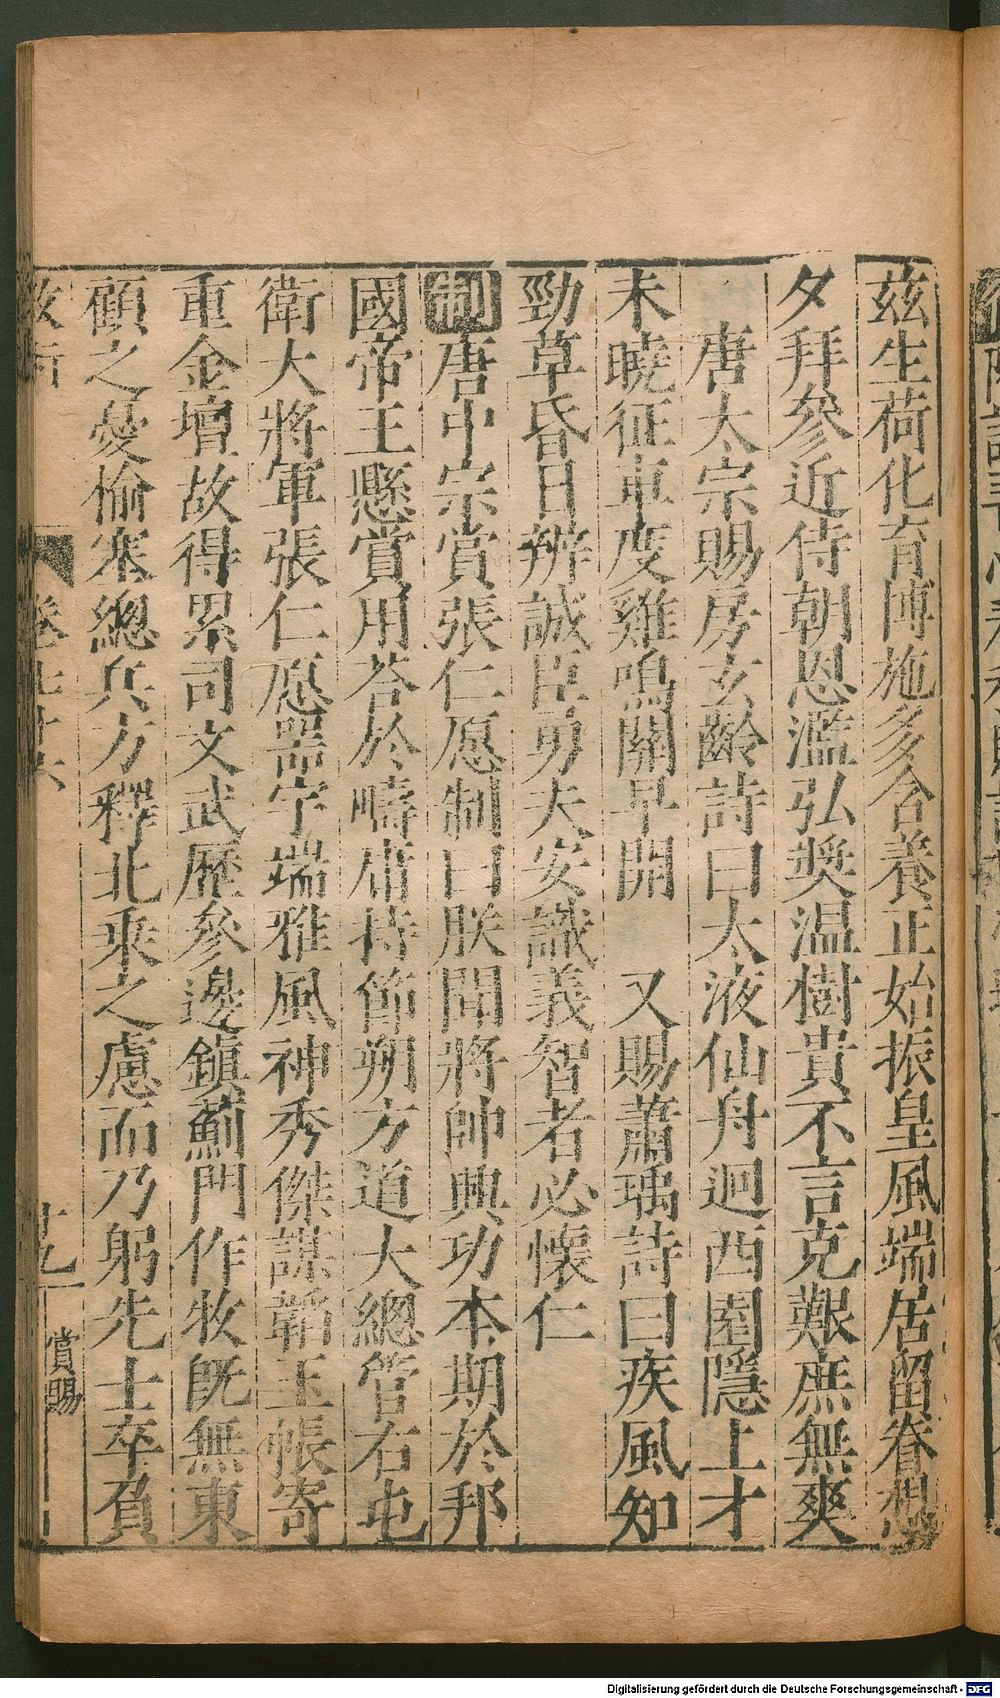 茲生荷化育博施多含養正始振皇風端居留眷想
夕拜參近侍朝恩濫弘奬温樹貴不言克艱庶無爽
唐太宗賜房玄齡詩曰太液仙舟迥西園隱上才
未曉征車度雞鳴關早開 又賜蕭瑀詩曰疾風知
勁草昏日辨誠臣勇夫安識義智者必懷仁
制唐中宗賞張仁愿制曰朕聞將帥興功本期於邦
國帝王懸賞用荅於疇庸持節朔方道大總管右屯
衛大將軍張仁愿器宇端雅風神秀傑謀韜玉帳寄
重金壇故得累司文武歷參邊鎮薊門作牧既無東
顧之憂愉塞總兵方釋北乘之慮而乃躬先士卒負
卷七十六
十九
賞賜
Digitalisierung gefördert durch die Deutsche Forschungsgemeinschaft - DFG